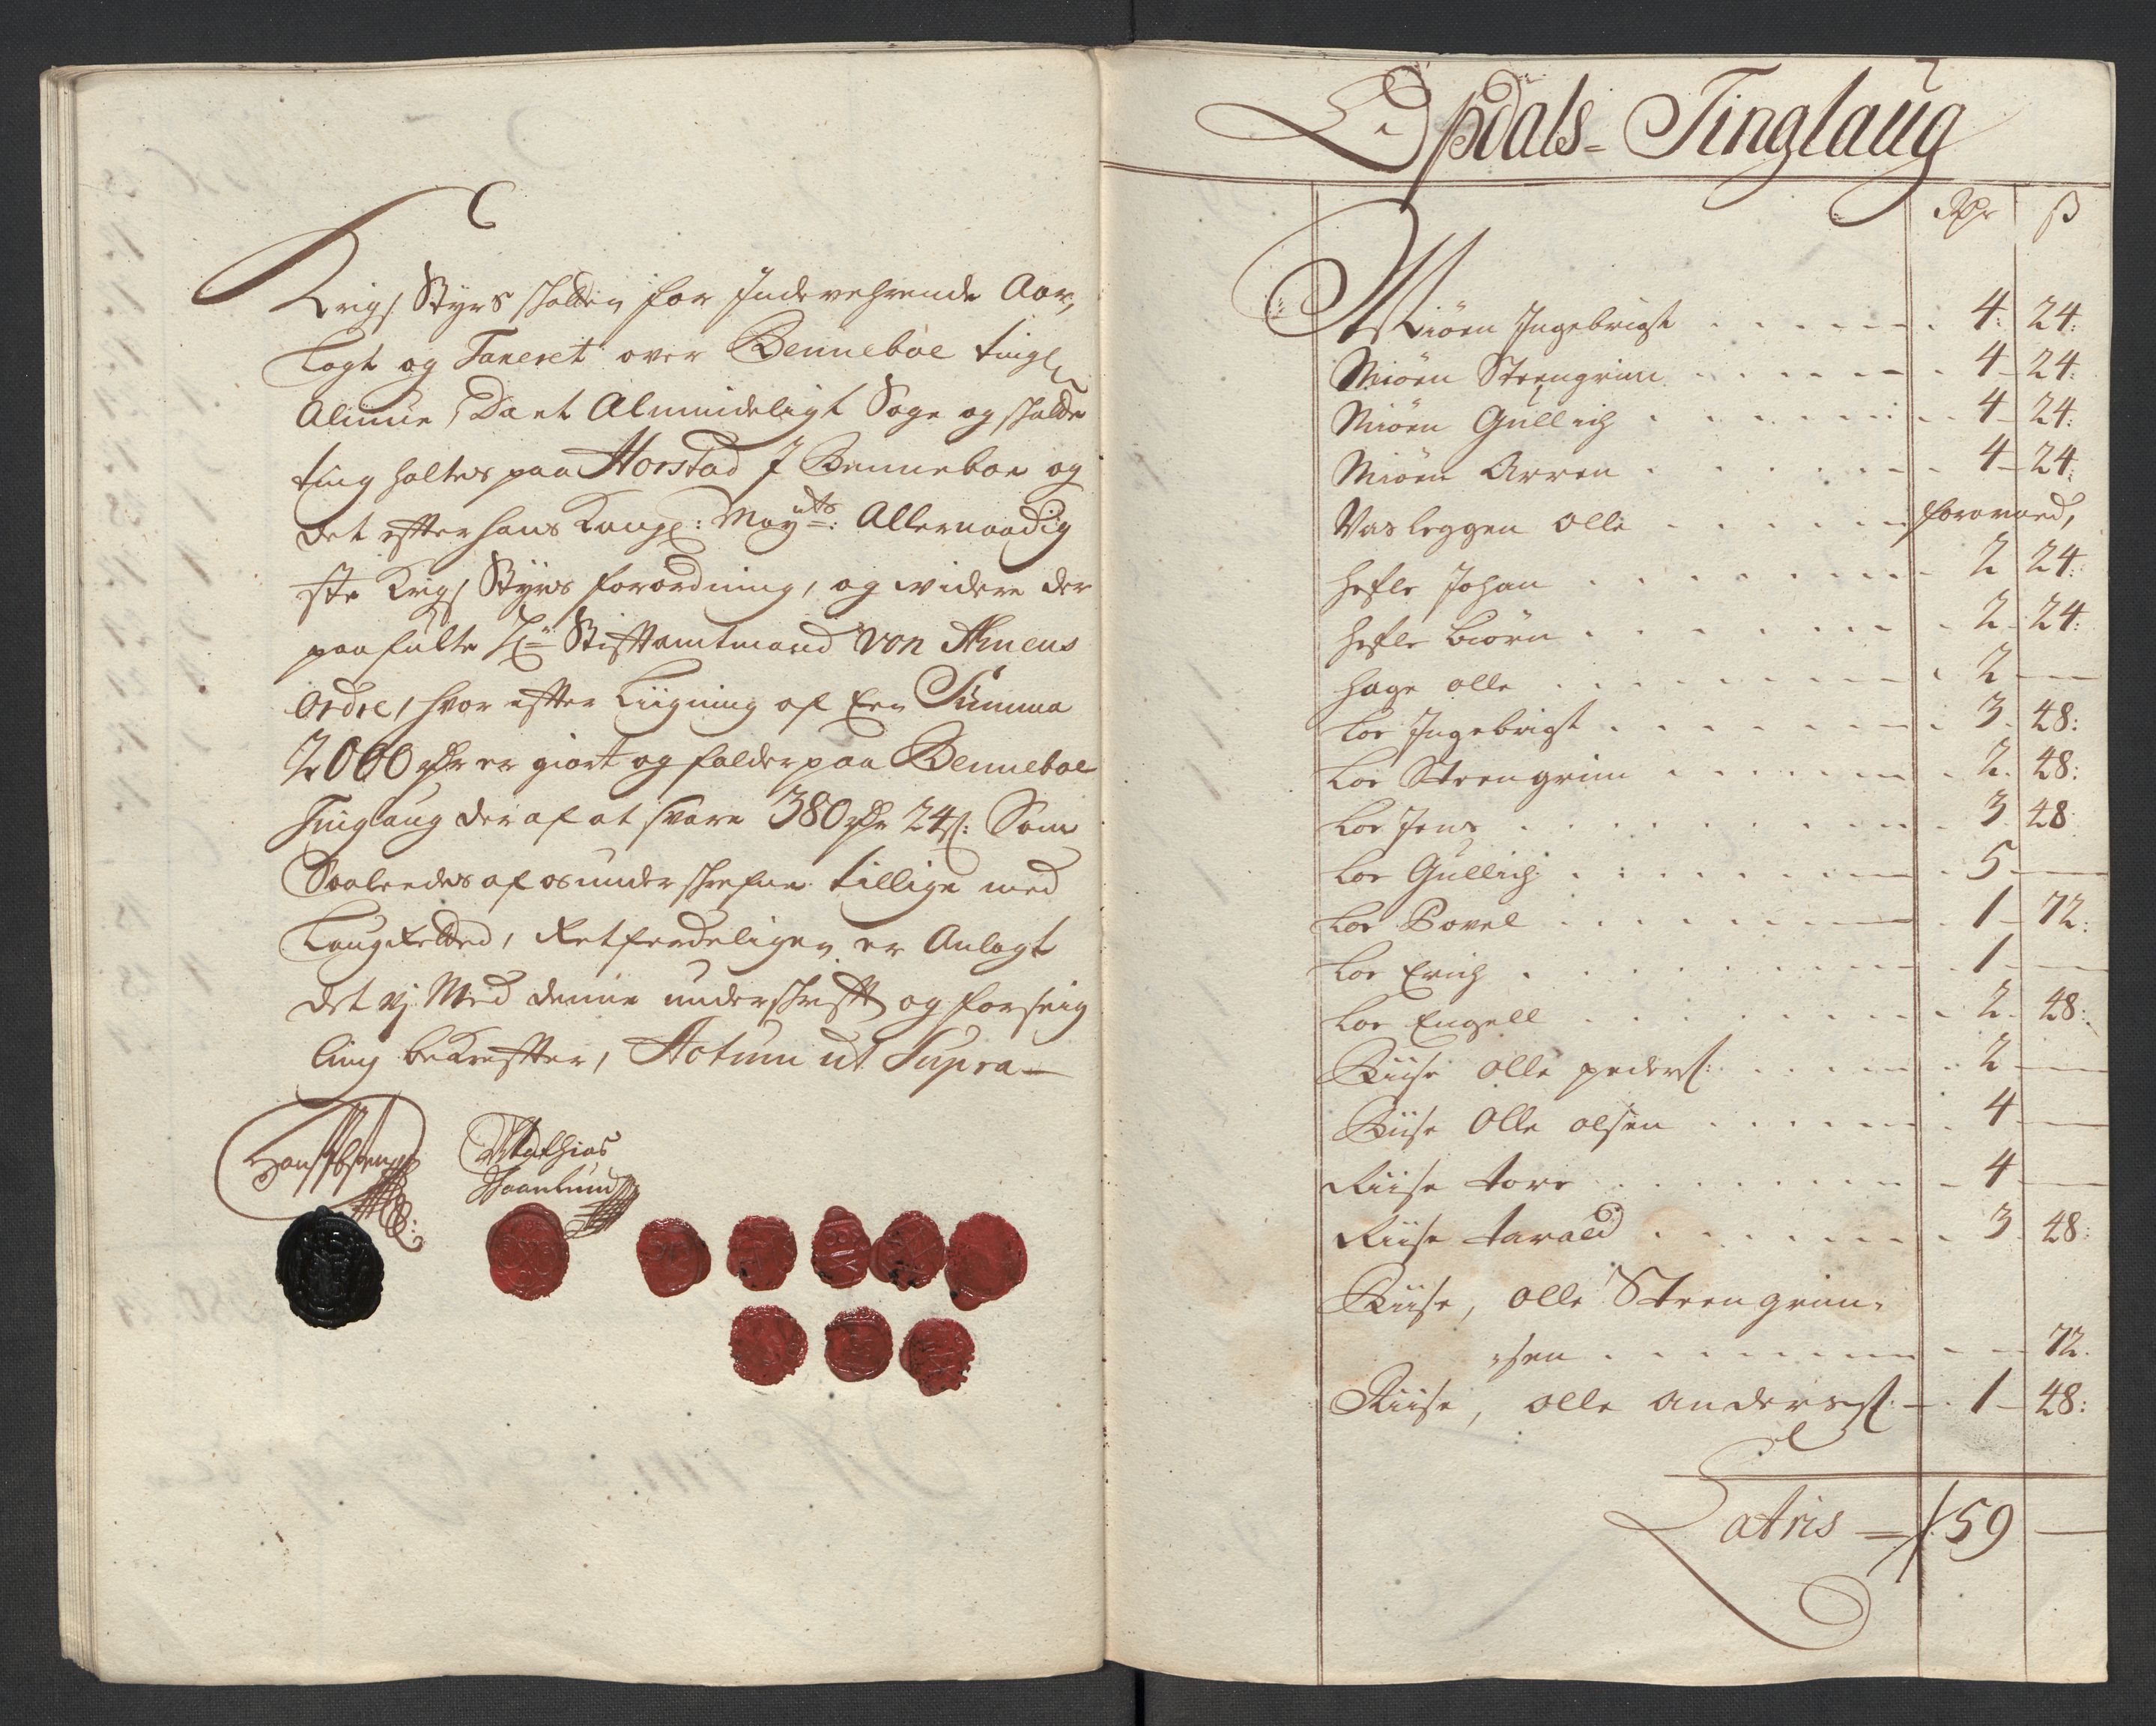 Krigs Styrs skatten for Indeverende Aar,
Lagt og Taxeret over Benneboe tingl
Alimue, Da et Almindeligt Sage og skatte
ting holtes paa Horstad J Benneboe og
det efter hans Kongl: Mayts: Allernaadig
ste Krigs Styrs forordning, og videre der
paa fulte Hr Stiftamtmand Von Ahnens
Ordre, hvor efter Liigning af Een Summa
2000 rdr er giort og falder paa Benneboe
Tinglaug der af at svare 380 rdr 24 s: Som
Saaleedes af os underskrefne tillige med
Laugretted, Retferdeligen er Anlagt
det vj Med denne underskrift og forseig
ling bekrefter, Actum ut Supra
Mathias
Opdals- Tinglaug
Rdr ß
Miöen Ingebrigt 4: 24:
Miöen Steengrim 4 24:
Miöen Gullich 4 24:
Miöen Arren 4 24:
Vasleggen Olle forarmed,
Hefle Johan 2 24:
Hefle Biörn 2 24:
Hage olle 2 —
Loe Ingebrigt 3 48:
Loe Steengrim 2 48:
Loe Jens 3 48
Loe Gullich 5 —
Loe Povel 1 72:
Loe Erich 1 —
Loe Engell 2 48:
Riise Olle peders: 2 —
Riise Olle olsen 4 —
Riise tore 4 —
Riise tarald 3 48:
Riise, olle Steengrim-
sen 72.
Riise, olle anders: 1 48:
Latris = 59 —